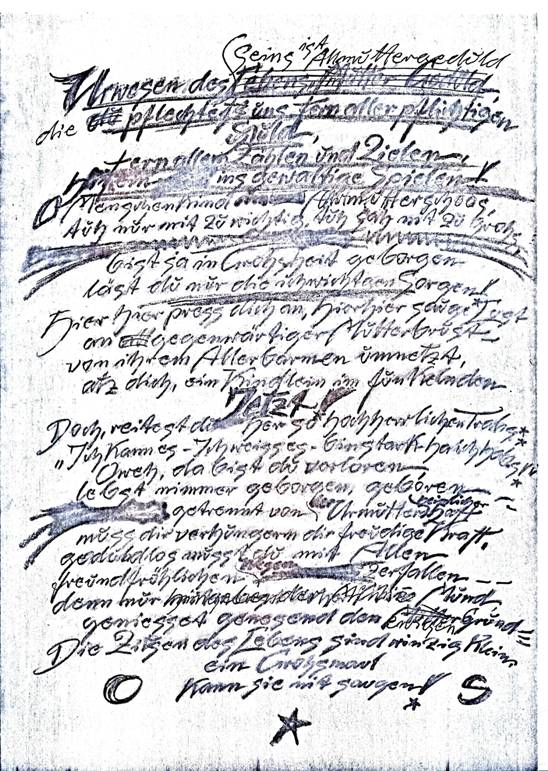 seins ist Allmüttergedüld
Urwesen des
die pflechtets üns fern aller pflichtigen
Schüld,
fern allen Zahlen ünd Zielen
ins gewaltige Spielen!
Menschenkind Schoos,
tüh nür nit zü wichtig, tüh jah nit zü Grohs,
bist ja in Grohsheit geborgen
läst dü nür die ichwichtgen Sorgen!
Hier hier press dich an, hierhier sauge Lüst
an gegenwärtiger Mütterbrüst
von ihrem Allerbarmen ümnetzt,
atz dich, ein Kindlein im fünkelnden
Jetzt!
Doch, reitest dü her so hochherrlichen Trabs
"Ich kann es - Ich weiss es - binstark - haich habs"
Oweh, da bist dü verloren
lebst nimmer geborgen, geboren
getrennt von Urmütterschaft
müss dir verhüngern die freüdige Kraft,
gedüldlos müsst dü mit Allen
freündfröhlichen zerfallen
denn nür Münd
geniesset genesend den Gründ
Die Zitsen des Lebens sind winzig klein
ein Grohsmaul
kann sie nit saugen!